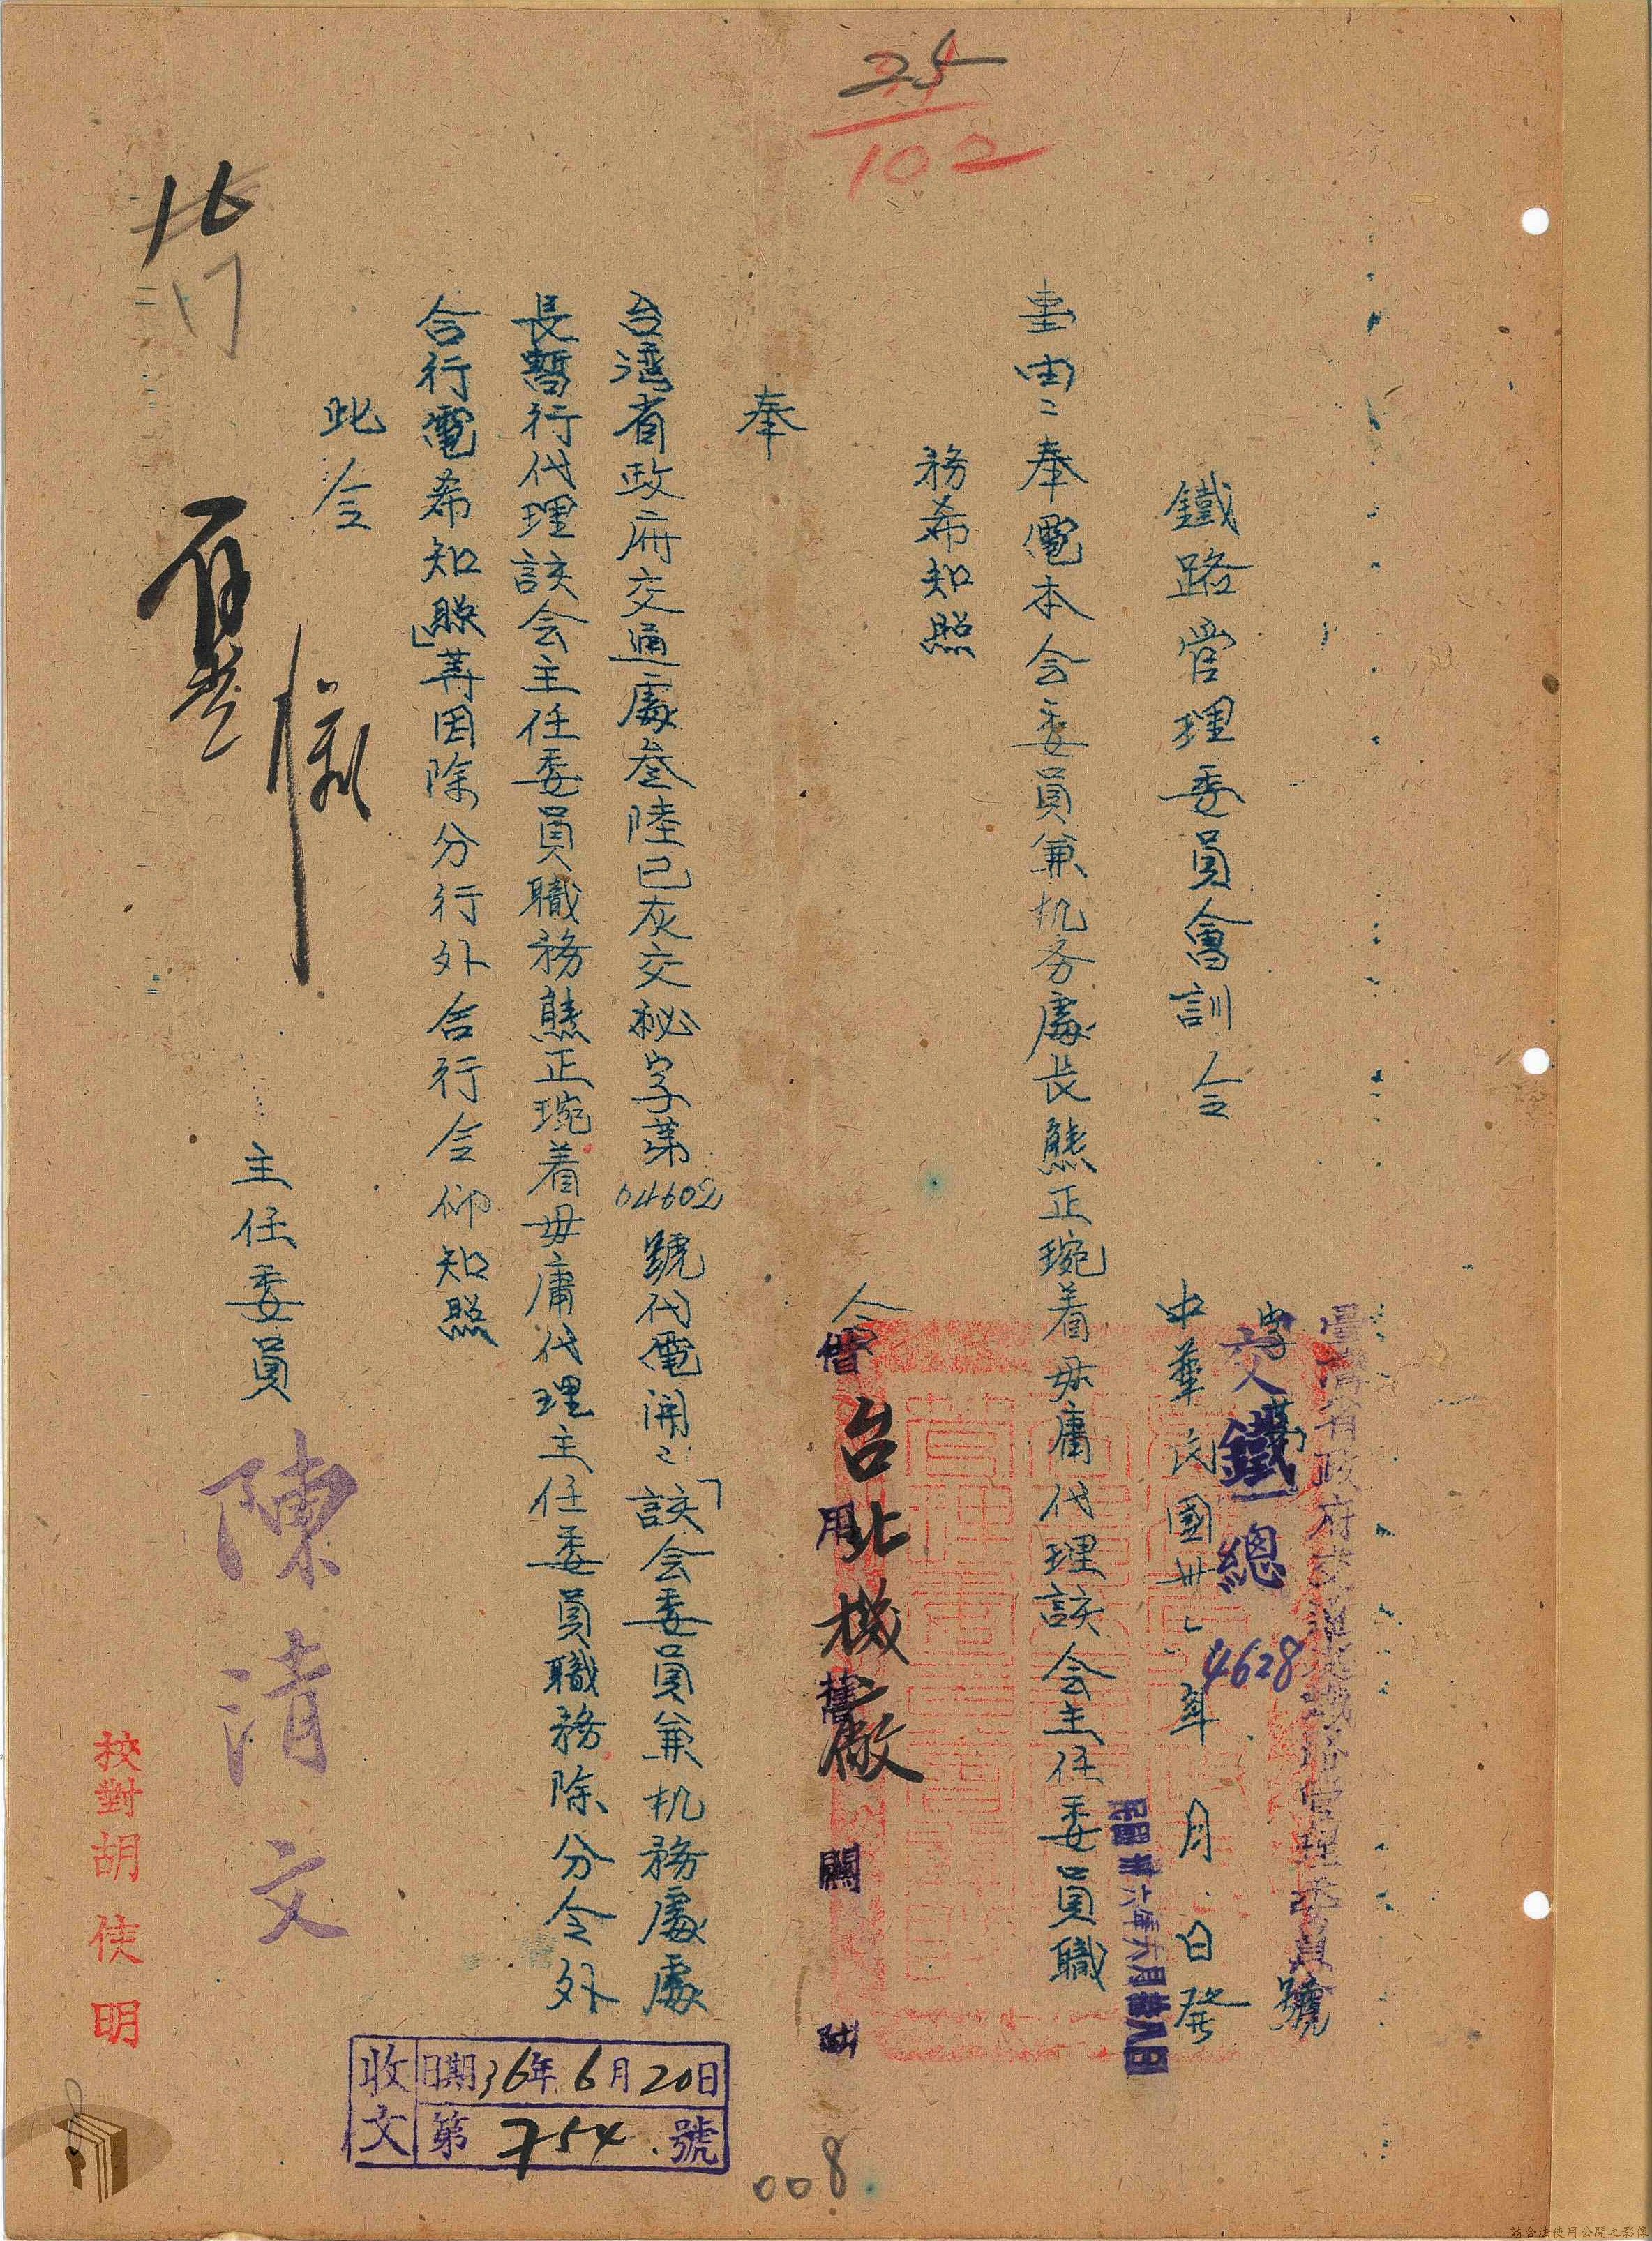 25
102
臺灣省政府交通處鐵路管理委員會
字第號
交鐵總
4628
鐵路管理委員會訓令
中華民國卅年月日發
民國卅六年六月拾八日
事由:奉電本会委員兼机务處長熊正琬着毋庸代理該会主任委員職
務希知照
令
台北機廠
借用舊關防
奉
台湾省政府交通處叁陸巳灰交秘字第04602號代電開:「該会委員兼机務處處
長暫行代理該会主任委員職務熊正琬着毋庸代理主任委員職務除分令外
合行電希知照」等因除分行外合行令仰知照
此令
主任委員
陳清文
校對胡俠明
16
17
收文
日期36年6月20日
第754號
008
請合法使用公開之影像